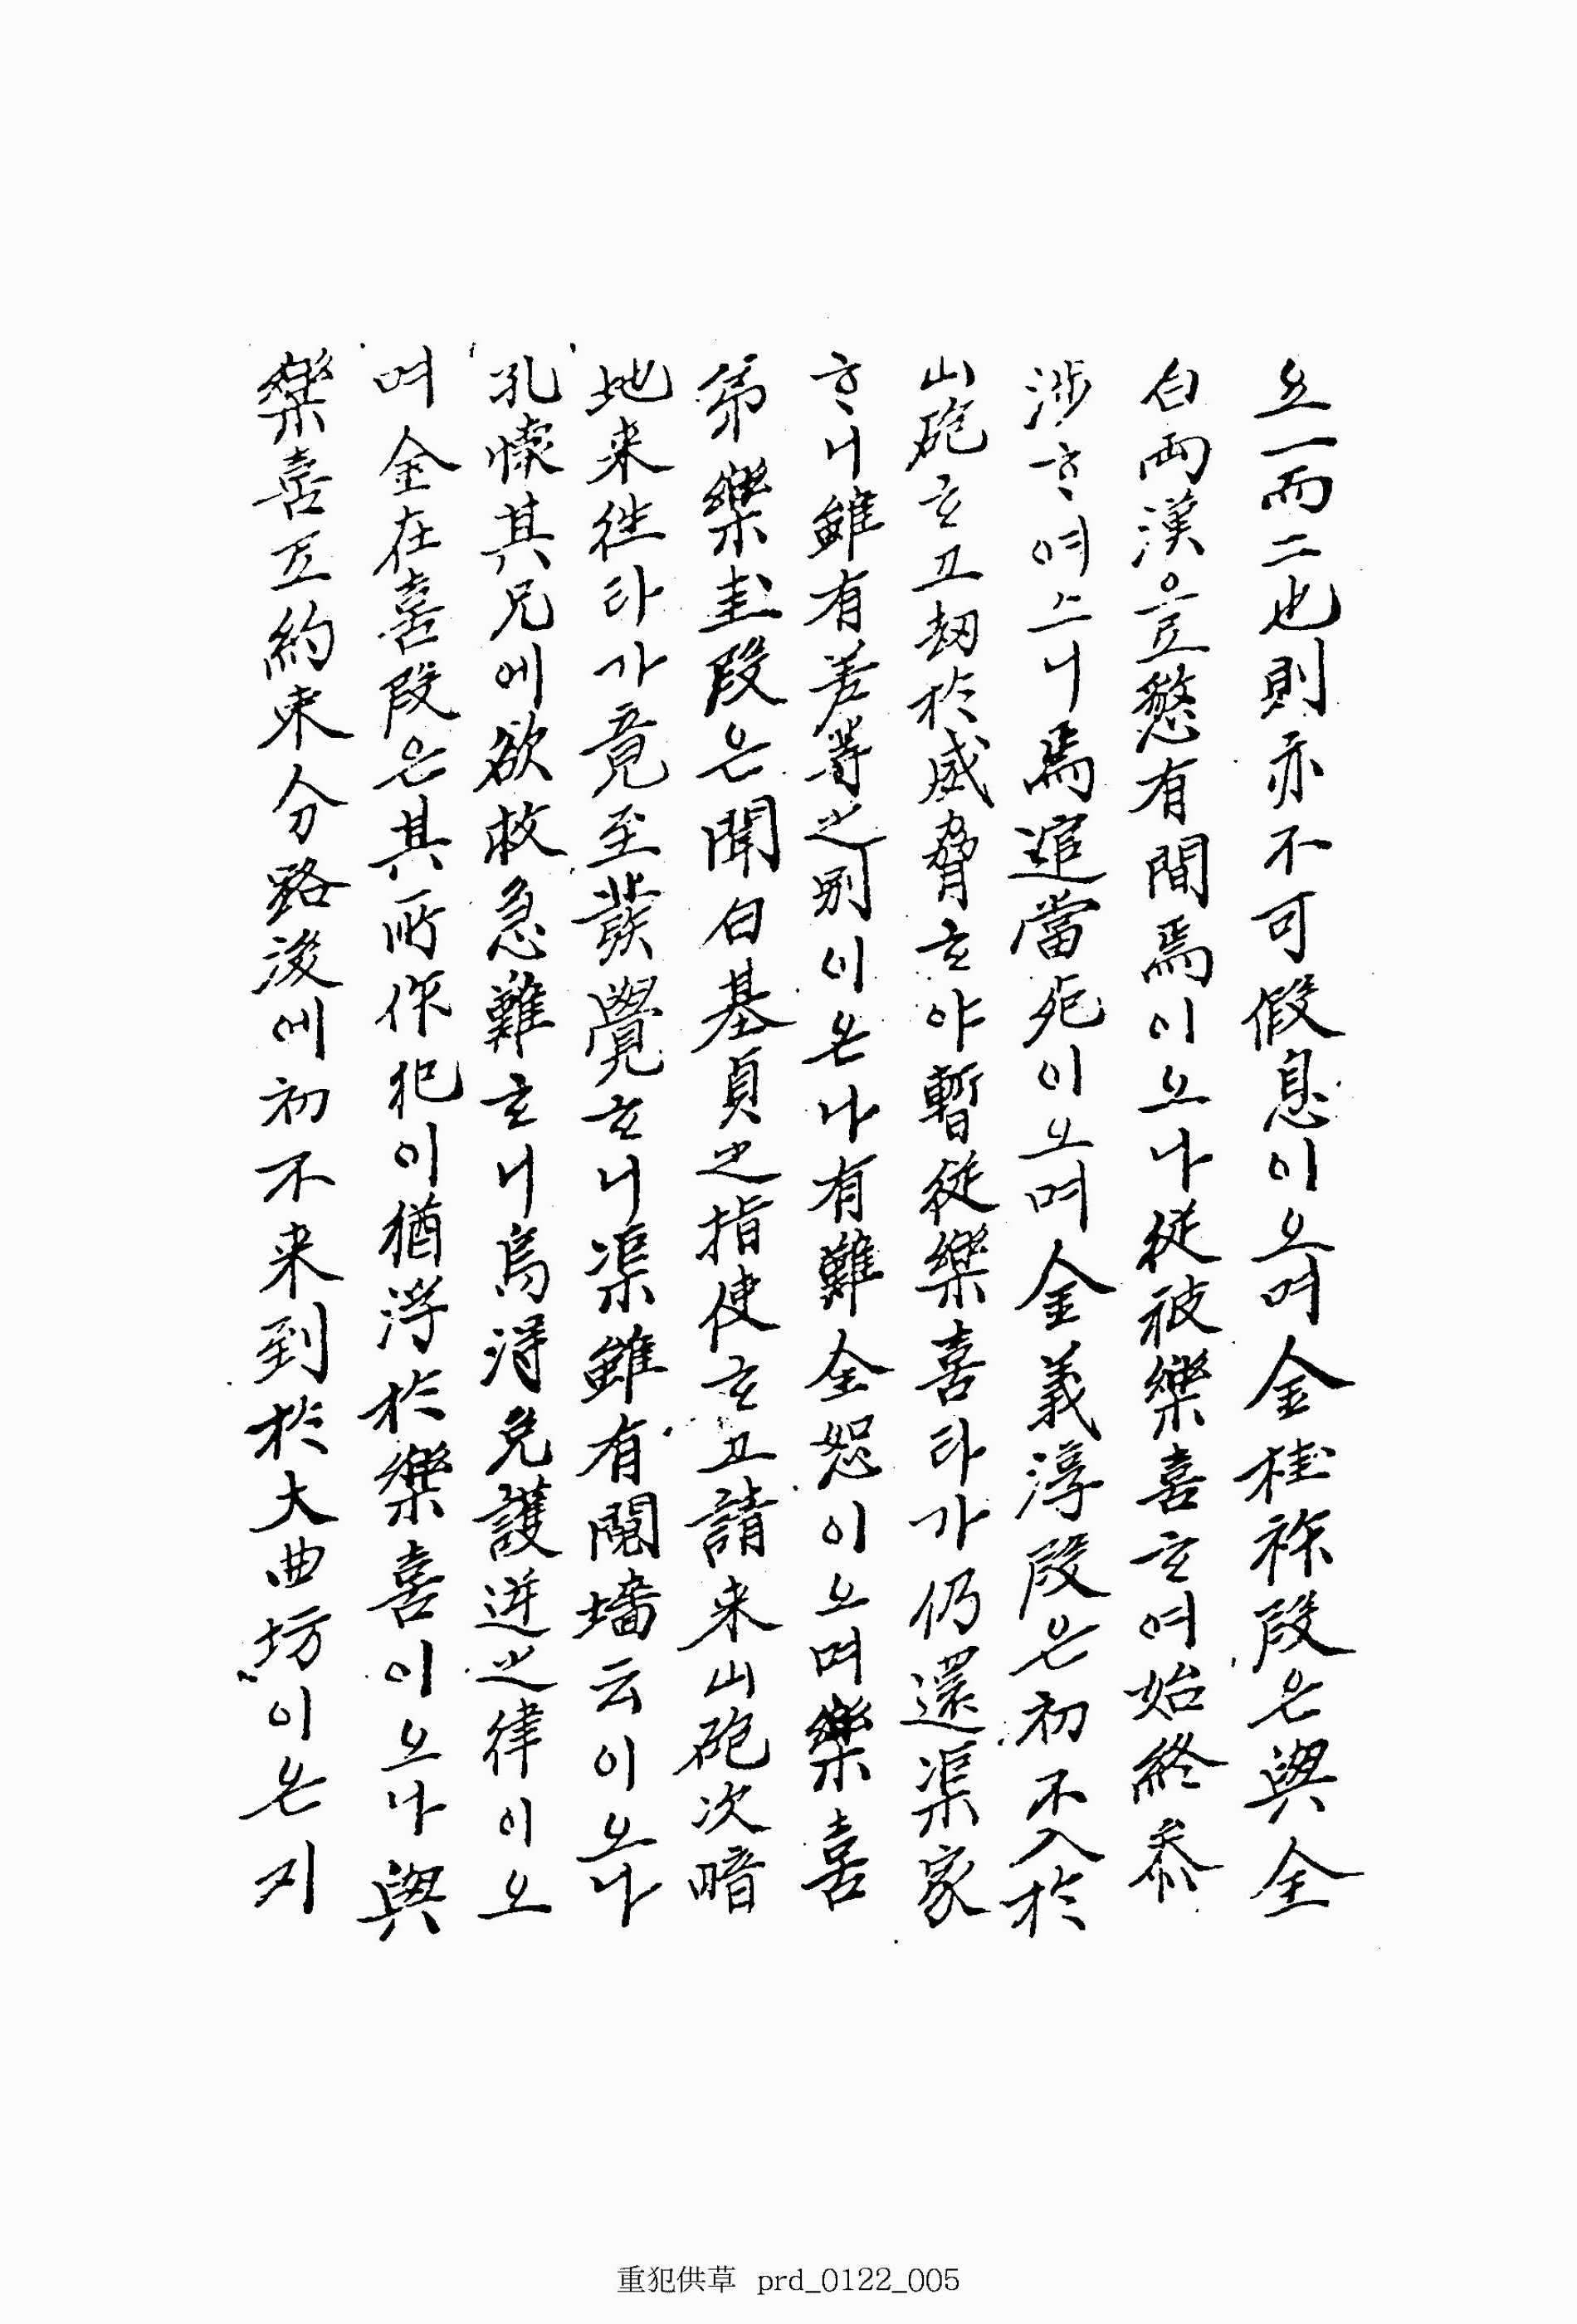 요一而二也則亦不可假息이오며金桂祢段은與全
白兩漢으로慜有間焉이오나從被樂喜ᄒᆞ여始終叅
涉ᄒᆞ여스니焉逭當死이오며金義淳段은初不入於
山砲ᄒᆞ고刼於威脅ᄒᆞ야暫從樂喜라가仍還渠家
ᄒᆞ니雖有差等之別이온나有難全恕이오며樂喜
弟樂圭段은聞白基貞之指使ᄒᆞ고請来山砲次暗
地来徃라가竟至發覺ᄒᆞ니渠雖有鬩墻云이오나
孔懷其兄에欲救急難ᄒᆞ니烏淂免護逬之律이오
며金在喜段은其所作犯이猶浮於樂喜이오나與
樂喜互約束分路後에初不来到於大曲坊이온지
重犯供草 prd_0122_005